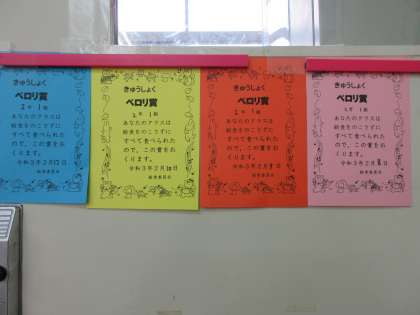 きゅうしょく
ペロリ賞
2年 1組
あなたのクラスは
給食をのこさずに
すべて食べられた
ので、この賞をお
くります。
令和3年2月12日
きゅうしょく
ペロリ賞
2年 1組
あなたのクラスは
給食をのこさずに
すべて食べられた
ので、この賞をお
くります。
令和3年2月10日
給食委員会
きゅうしょく
ペロリ賞
2年 1組
あなたのクラスは
給食をのこさずに
すべて食べられた
ので、この賞をお
くります。
令和3年2月9日
給食委員会
きゅうしょく
ペロリ賞
2年 1組
あなたのクラスは
給食をのこさずに
すべて食べられた
ので、この賞をお
くります。
令和3年2月8日
給食委員会